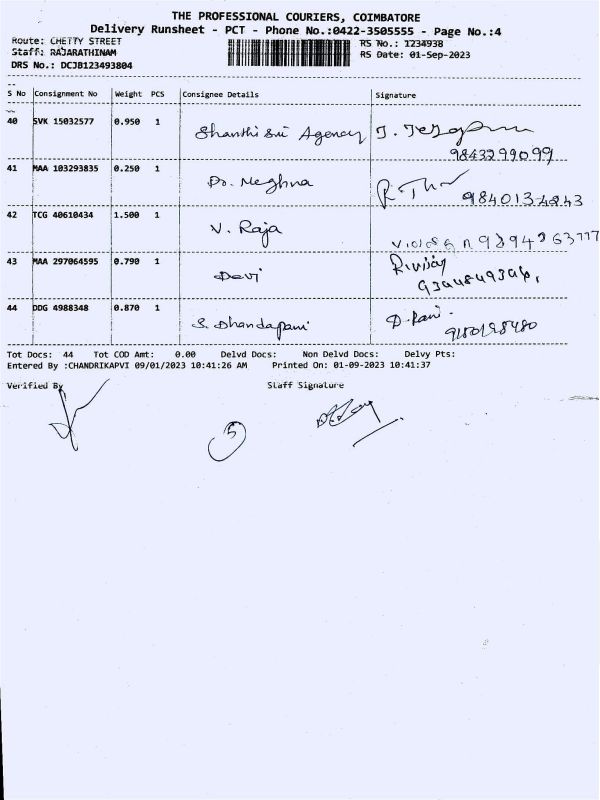 THE PROFESSIONAL COURIERS, COIMBATORE
Delivery Runsheet - PCT - Phone No.:0422-3505555 - Page No.:4
Route: CHETTY STREET RS No.: 1234938
Staff: RAJARATHINAM RS Date: 01-Sep-2023
DRS No.: DCJB123493804
S No Consignment No Weight PCS Consignee Details Signature
40 SVK 15032577 0.950 1 Shanthi Sri Agency
9843299099
41 MAA 103293835 0.250 1 Dr. Meghna
42 TCG 40610434 1.500 1 V. Raja
43 MAA 297064595 0.790 1 Devi R.Vijay
44 DDG 4988348 0.870 1 S. Dhandapani D. Rani
9180198480
Tot Docs: 44 Tot COD Amt: 0.00 Delvd Docs: Non Delvd Docs: Delvy Pts:
Entered By :CHANDRIKAPVI 09/01/2023 10:41:26 AM Printed On: 01-09-2023 10:41:37
Verified By Staff Signature
5